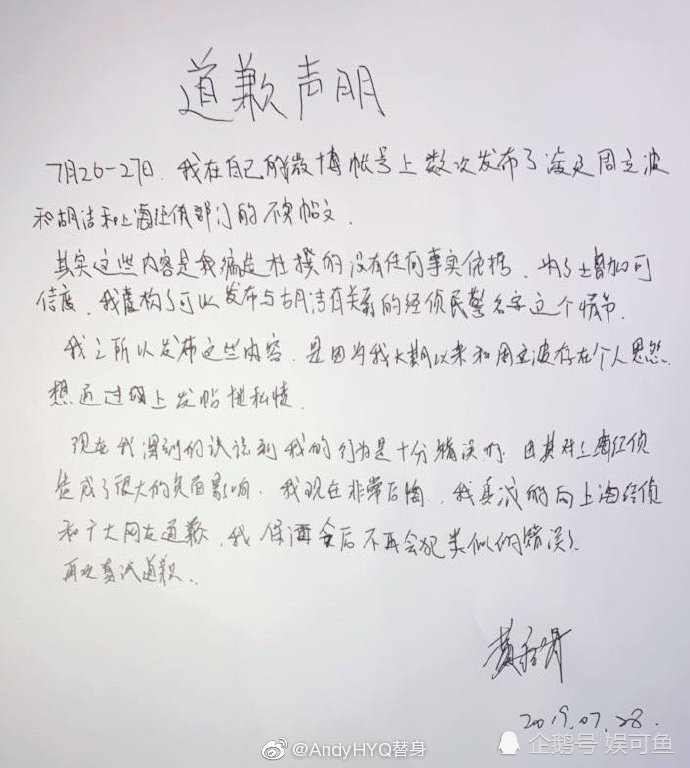 道歉声明
7月26-27日,我在自己的微博帐号上数次发布了涉及周立波
和胡洁和上海经侦部门的不实帖文.
其实这些内容是我编造杜撰的没有任何事实依据.为了增加可
信度.我虚构了可以发布与胡洁有关系的经侦民警名字这个情节.
我之所以发布这些内容.是因为我长期以来和周立波存在个人恩怨.
想通过网上发帖泄私愤.
现在我深刻的认识到我的行为是十分错误的.尤其对上海经侦
造成了很大的负面影响.我现在非常后悔.我真诚的向上海经侦
和广大网友道歉.我保证今后不再会犯类似的错误.
再次真诚道歉.
2019.07.28.
@AndyHYQ替身
企鹅号 娱可鱼